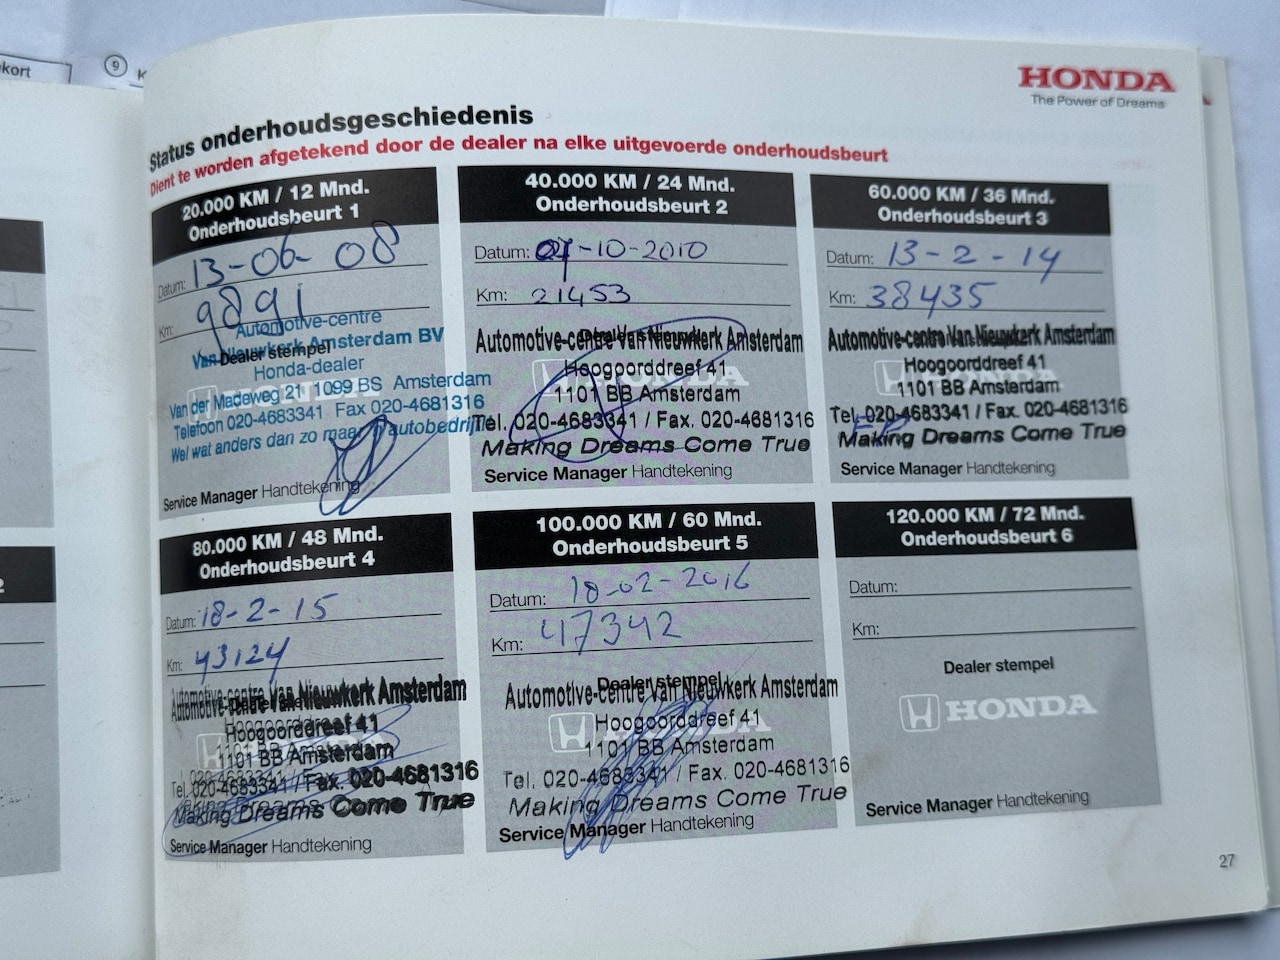 kort
9
HONDA
The Power of Dreams
Status onderhoudsgeschiedenis
Dient te worden afgetekend door de dealer na elke uitgevoerde onderhoudsbeurt
20.000 KM / 12 Mnd.
Onderhoudsbeurt 1
Datum: 13-06-08
Km: 9891
Automotive-centre
Van Nieuwkerk Amsterdam BV
Dealer stempel
Honda-dealer
HONDA
Van der Madeweg 21 1099 BS Amsterdam
Telefoon 020-4683341 Fax 020-4681316
Wel wat anders dan zo maar 'n autobedrijf
Service Manager Handtekening
40.000 KM / 24 Mnd.
Onderhoudsbeurt 2
Datum: 07-10-2010
Km: 21453
Automotive-centre Van Nieuwkerk Amsterdam
Dealer stempel
Hoogoorddreef 41
HONDA
1101 BB Amsterdam
Tel. 020-4683341 / Fax. 020-4681316
Making Dreams Come True
Service Manager Handtekening
60.000 KM / 36 Mnd.
Onderhoudsbeurt 3
Datum: 13-2-14
Km: 38435
Automotive-centre Van Nieuwkerk Amsterdam
Hoogoorddreef 41
HONDA
1101 BB Amsterdam
Tel. 020-4683341 / Fax. 020-4681316
Making Dreams Come True
Service Manager Handtekening
80.000 KM / 48 Mnd.
Onderhoudsbeurt 4
Datum: 18-2-15
Km: 43124
Automotive-centre Van Nieuwkerk Amsterdam
Hoogoorddreef 41
HONDA
1101 BB Amsterdam
Tel. 020-4683341 / Fax. 020-4681316
Making Dreams Come True
Service Manager Handtekening
100.000 KM / 60 Mnd.
Onderhoudsbeurt 5
Datum: 18-02-2016
Km: 47342
Dealer stempel
Automotive-centre Van Nieuwkerk Amsterdam
Hoogoorddreef 41
HONDA
1101 BB Amsterdam
Tel. 020-4683341 / Fax. 020-4681316
Making Dreams Come True
Service Manager Handtekening
120.000 KM / 72 Mnd.
Onderhoudsbeurt 6
Datum:
Km:
Dealer stempel
HONDA
Service Manager Handtekening
27